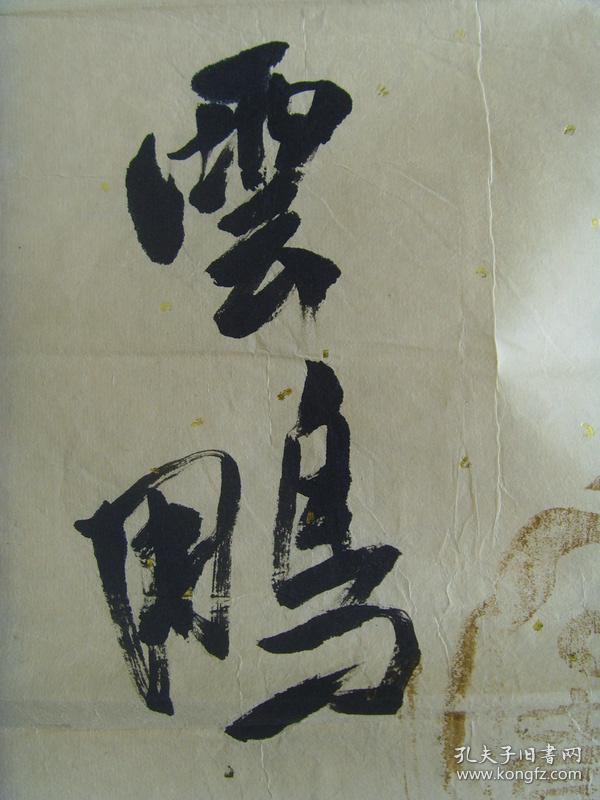 雲
孔夫子旧書网
www.kongfz.com